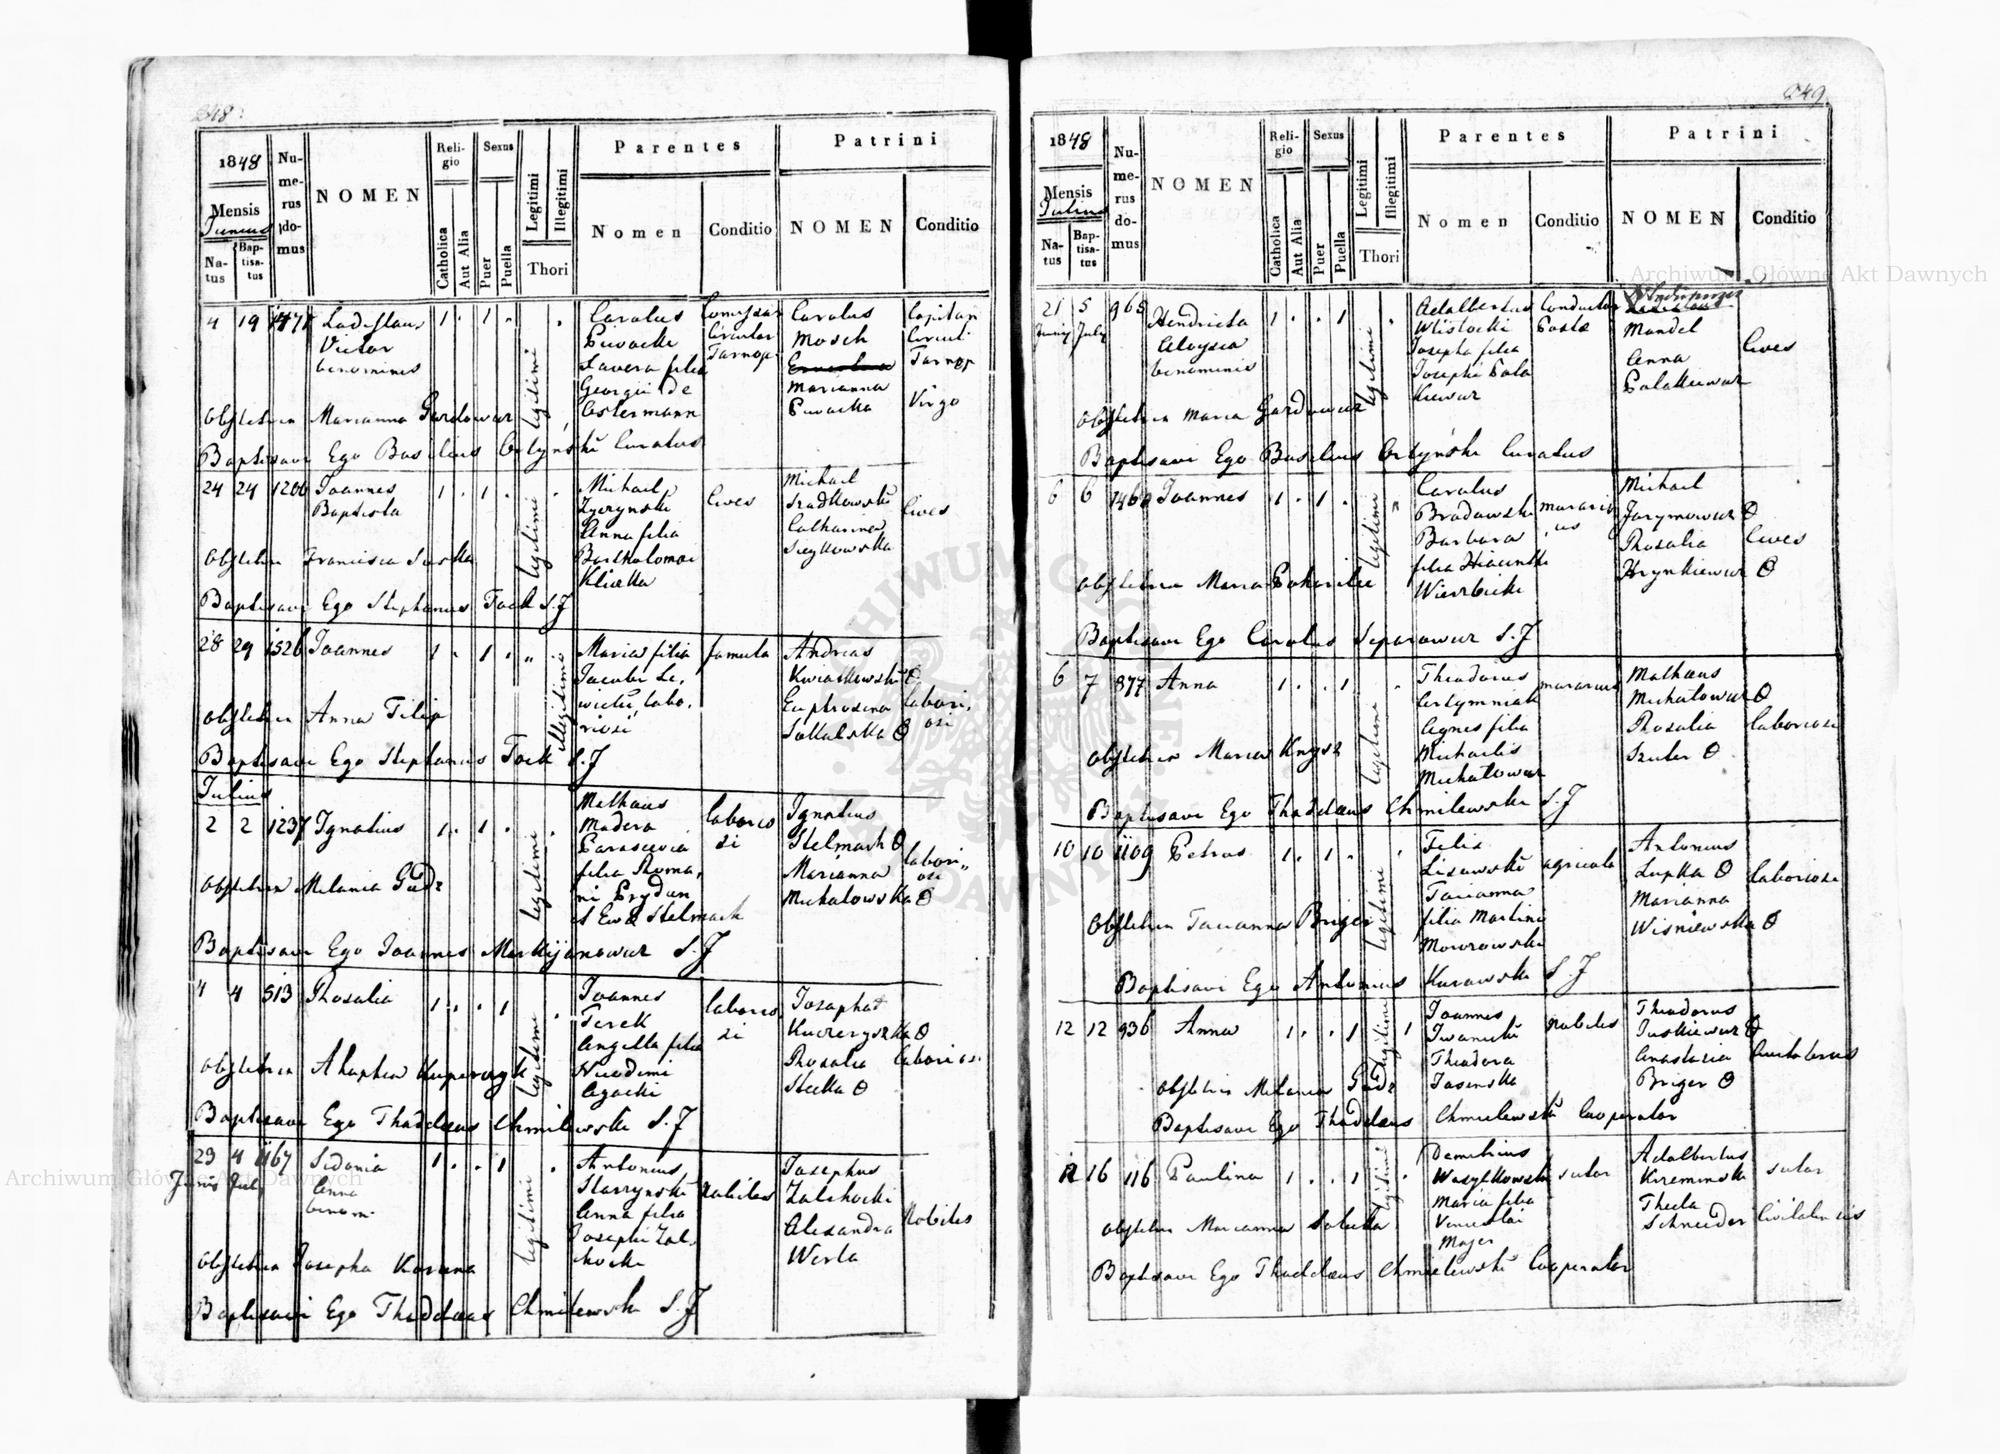 348
1848
Mensis
Junius
Na-
tus
Bap-
tisa-
tus
Nu-
me-
rus
do-
mus
NOMEN
Reli-
gio
Catholica
Aut Alia
Sexus
Puer
Puella
Legitimi
Illegitimi
Thori
Parentes
Nomen
Conditio
Patrini
NOMEN
Conditio
4 19 1471 Ladislaus 1 . 1 . legitimi .
Victor
binominis
Carolus
Xavera filia
Georgii de
Ostermann
Circular
Tarnop
Carolus
Mosch
Marianna
Capitan
Circul
Tarnop
Virgo
Obstetrix Marianna
Baptisavi Ego Basilius Ortynski Curatus
24 24 1206 Joannes 1 . 1 . legitimi .
Baptista
Michael
Zyczynski
Anna filia
Bartholomei
Cives
Michael
Sradkowski
Catharina
Cives
Obstetrix Francisca
Baptisavi Ego Stephanus Fock S.J
28 29 1526 Joannes 1 . 1 . " illegitimi
Maria filia
Jacobi Le,
wicki, labo,
riosi
famula
Andreas
Kwiatkowski
Euphrosina
Sokalska
labori,
osi
Obstetrix Anna Filip
Baptisavi Ego Stephanus Fock S.J
Julius
2 2 1237 Ignatius 1 . 1 . legitimi .
Mathaus
Madera
Parascevia
filia Roma,
ni Prydun
et Eva Stelmach
laborio
si
Ignatius
Stelmach
Marianna
Michalowska
labori"
osi
Obstetrix Melania Gudz
Baptisavi Ego Joannes Markijanowicz S.J
4 4 513 Rosalia 1 . . 1 legitimi .
Joannes
Terek
Angella filia
Nicodimi
laborio
si
Josaphat
Rosalia
Stecka
laboriosi
Obstetrix Ahaphia
Baptisavi Ego Thaddaeus Chmilewski S.J
29 4 1167 Sidonia 1 . . 1 legitimi .
Junis July Anna
binom.
Antonius
Starzynski
Anna filia
Josephi Zal,
chocki
Nobiles
Josephus
Zalchocki
Alexandra
Werla
Nobiles
Obstetrix Josepha Korona
Baptisavi Ego Thaddaeus Chmilewski S.J
349
1848
Mensis
Julius
Na-
tus
Bap-
tisa-
tus
Nu-
me-
rus
do-
mus
NOMEN
Reli-
gio
Catholica
Aut Alia
Sexus
Puer
Puella
Legitimi
Illegitimi
Thori
Parentes
Nomen
Conditio
Patrini
NOMEN
Conditio
21 5 965 Hendrica 1 . . 1 legitimi .
Juny July Aloysia
binominis
Adalbertus
Wlistocki
Josepha filia
Conductor
Posta
Mandel
Anna
Cives
Obstetrix Maria
Baptisavi Ego Basilius Ortynski Curatus
6 6 1460 Joannes 1 . 1 . legitimi "
Carolus
Bradowski
Barbara
filia Hiacinthi
Wierzbicki
murari
us
Michael
Jarymowicz
Rosalia
Hrynkiewicz
Cives
Obstetrix Maria
Baptisavi Ego Carolus Separowicz S.J
6 7 877 Anna 1 . . 1 legitimi .
Theodorus
Artymniak
Agnes filia
Michaelis
Michalowicz
murarius
Mathaus
Michalowicz
Rosalia
Szuter
laboriosi
Obstetrix Maria Knysz
Baptisavi Ego Thaddaeus Chmilewski S.J
10 10 1109 Petrus 1 . 1 . legitimi .
Felix
Lisowski
Tacianna
filia Martini
Mowrowski
agricola
Antonius
Lupka
Marianna
Wisniewska
laboriosi
Obstetrix Tacianna Briger
Baptisavi Ego Antonius Kurowski S.J
12 12 936 Anna 1 . . 1 legitimi 1
Joannes
Iwanicki
Theodora
Jasenska
nobiles
Theodorus
Juskiewicz
Anastasia
Briger
Obstetrix Melania Gudz
Baptisavi Ego Thaddaeus Chmielewski Cooperator
12 16 116 Paulina 1 . . 1 legitimi .
Demitrius
Wasylkowski
Maria filia
Venceslai
Majer
sutor
Adalbertus
Kreminski
Thecla
Schneider
sutor
Civitatensis
Obstetrix Marianna
Baptisavi Ego Thaddaeus Chmielewski Cooperator
Archiwum Główne Akt Dawnych
Archiwum Główne Akt Dawnych
ARCHIWUM GŁÓWNE AKT DAWNYCH